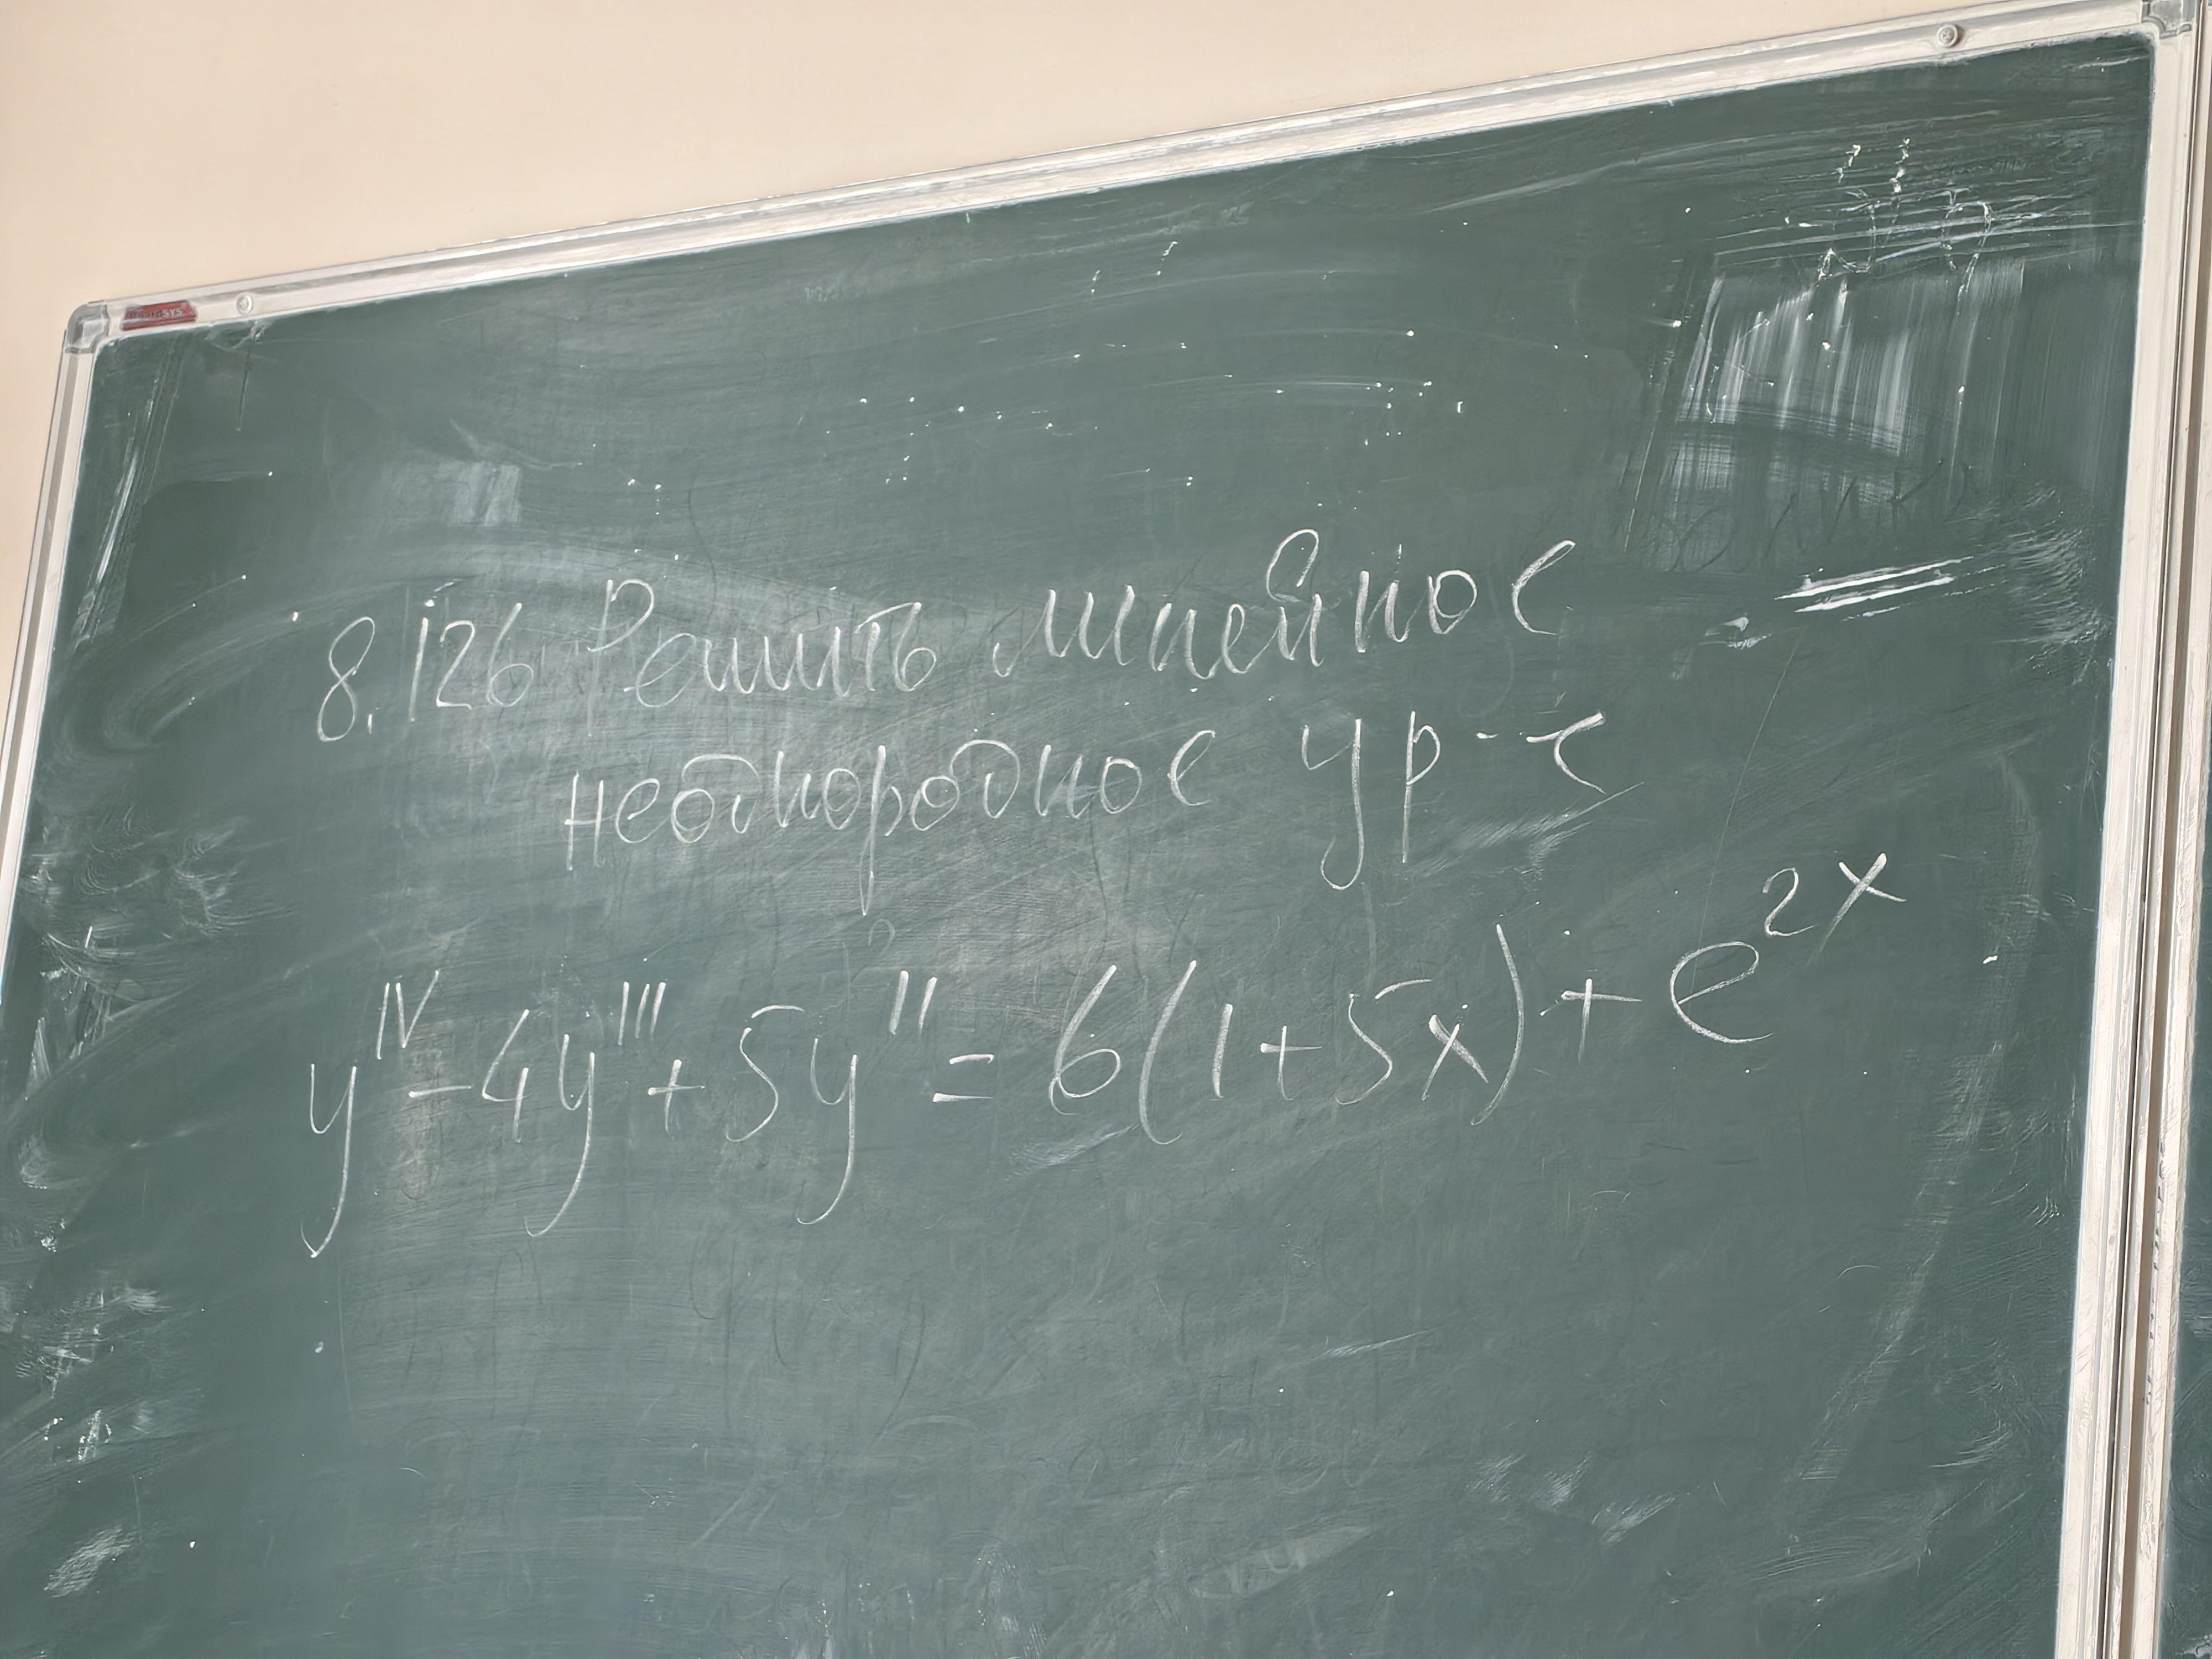 8.126 Решить линейное
неоднородное ур-е
y^IV - 4y''' + 5y'' = 6(1+5x) + e^2x